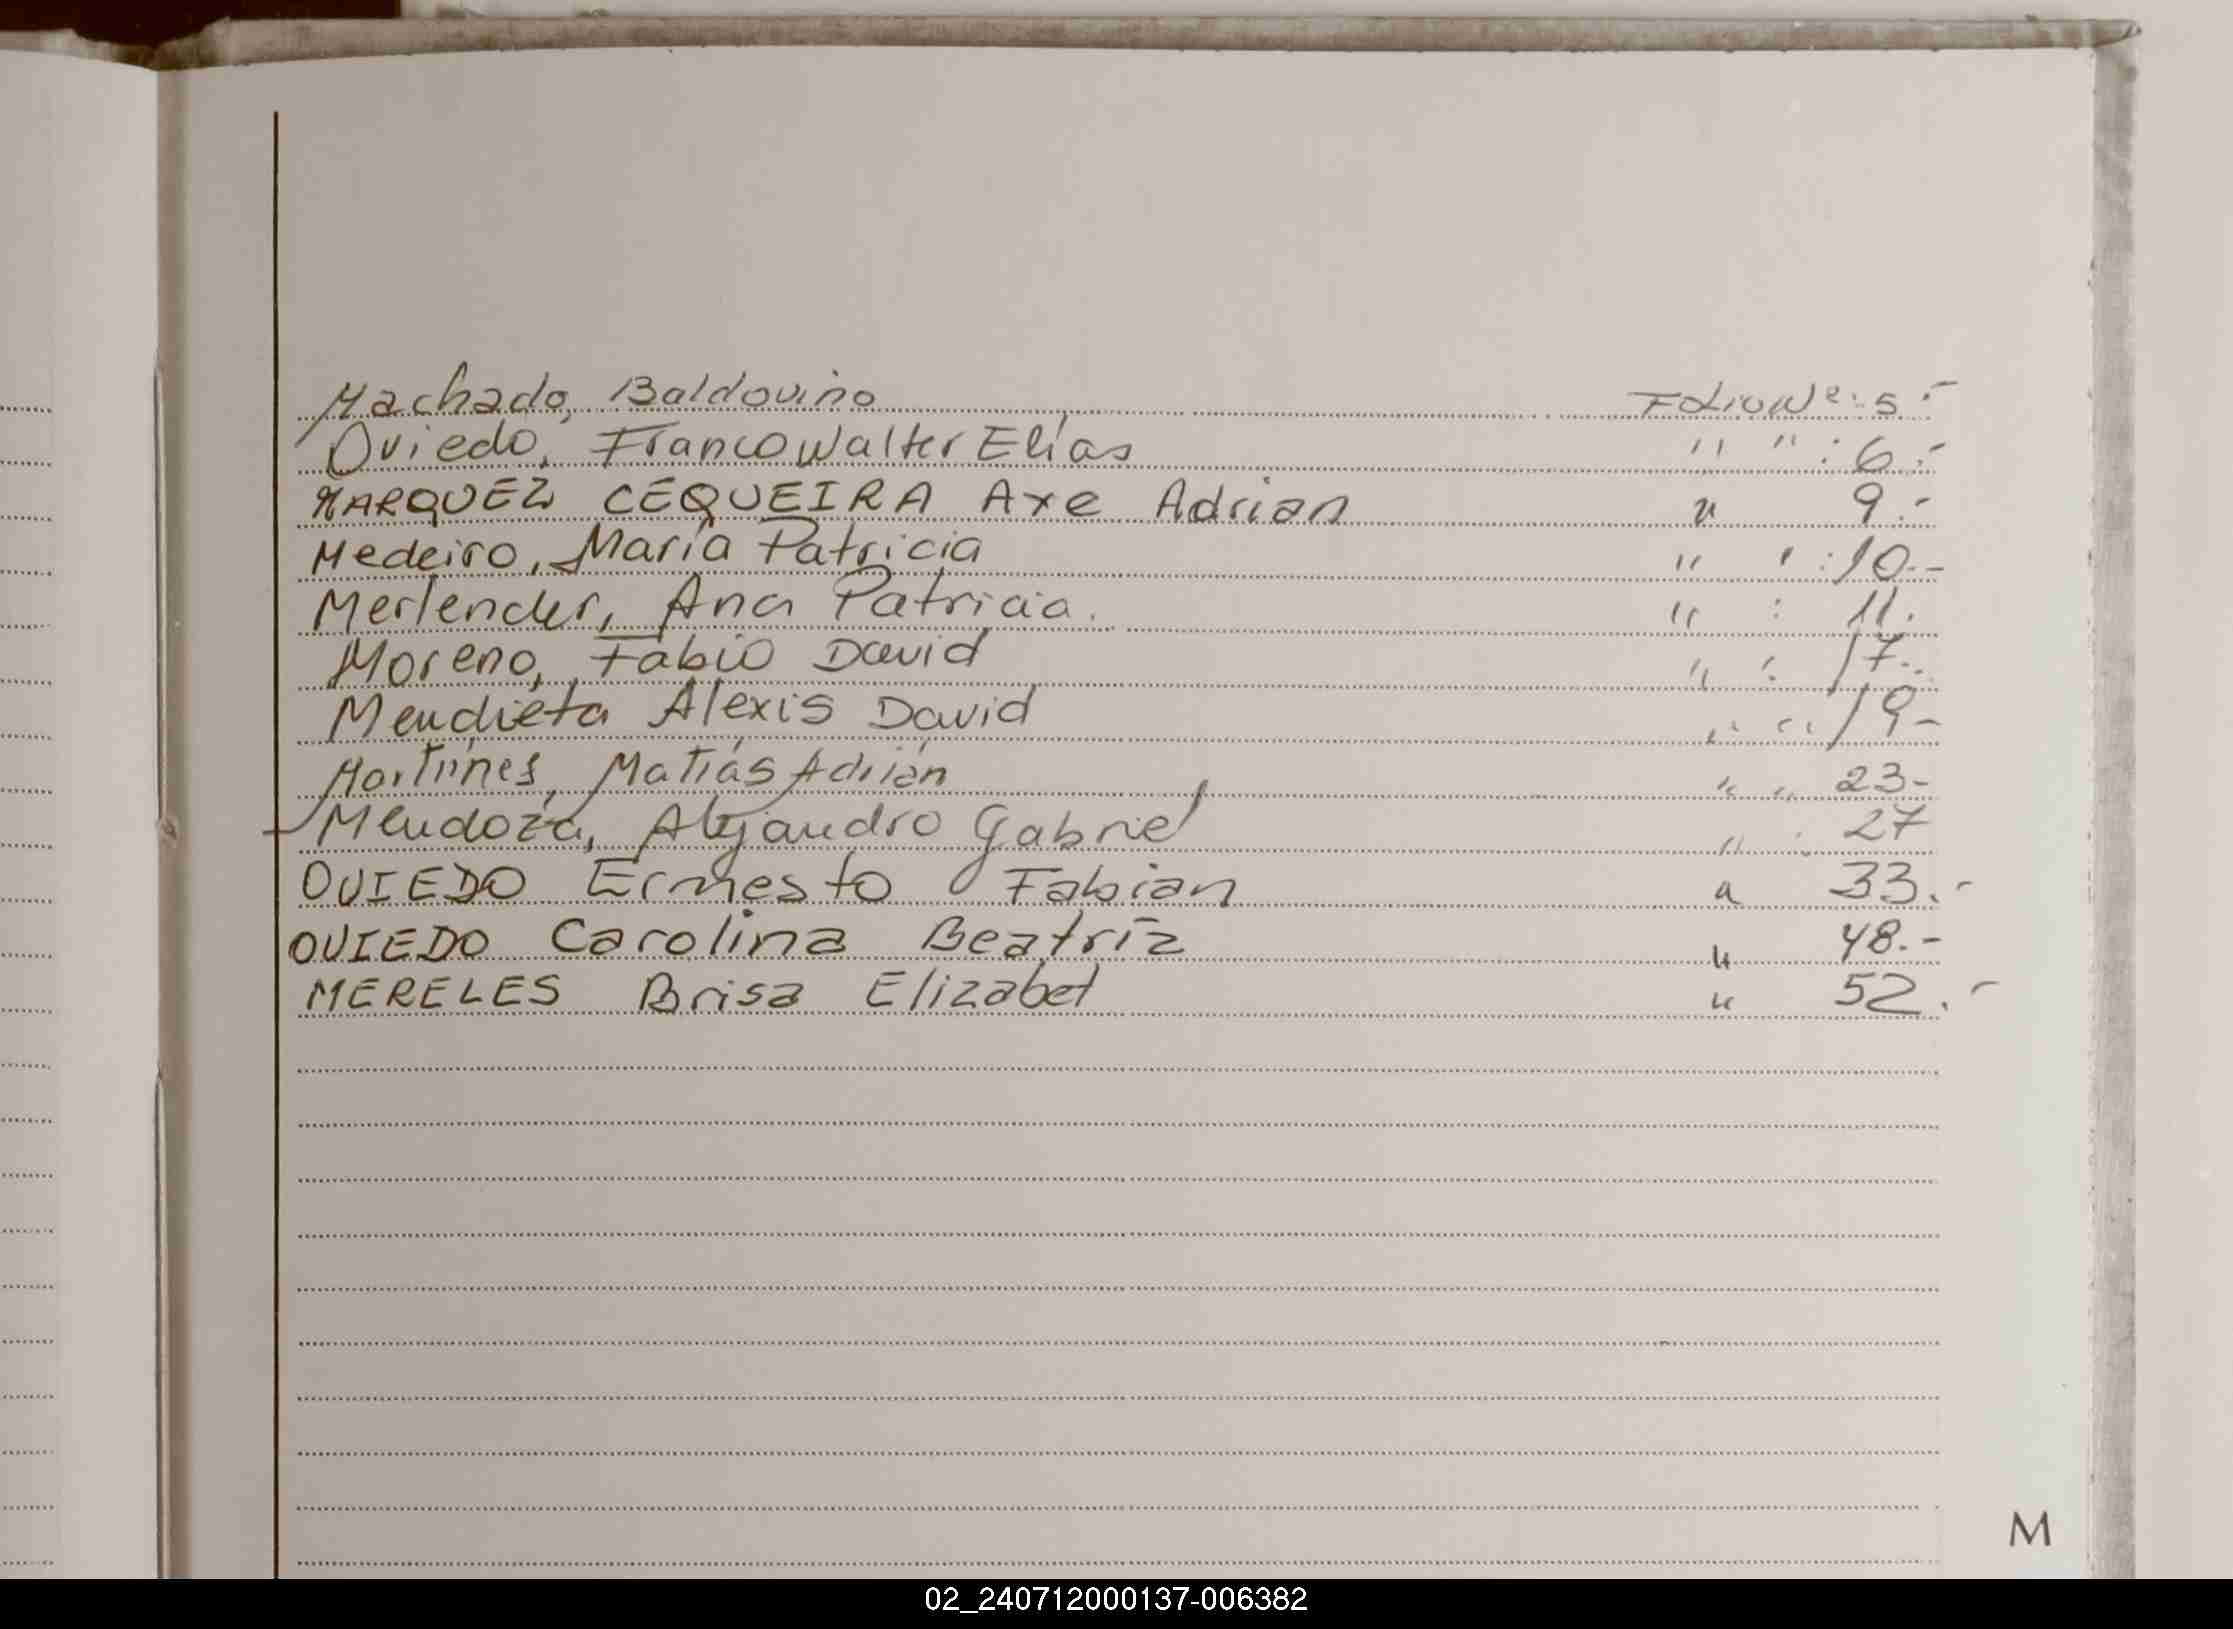 Machado, Baldovino Folio Nº: 5.-
Oviedo, Franco Walter Elías " " : 6.-
MARQUEZ CEQUEIRA Axe Adrian " 9.-
Medeiro, María Patricia " " : 10.-
Merlender, Ana Patricia. " : 11.
Moreno, Fabio David " : 17.-
Mendieta Alexis David " " 19-
Martínes, Matías Adrián " " 23-
Mendoza, Alejandro Gabriel " " 27
OVIEDO Ernesto Fabian " 33.-
OVIEDO Carolina Beatríz " 48.-
MERELES Brisa Elizabet " 52.-
M
02_240712000137-006382